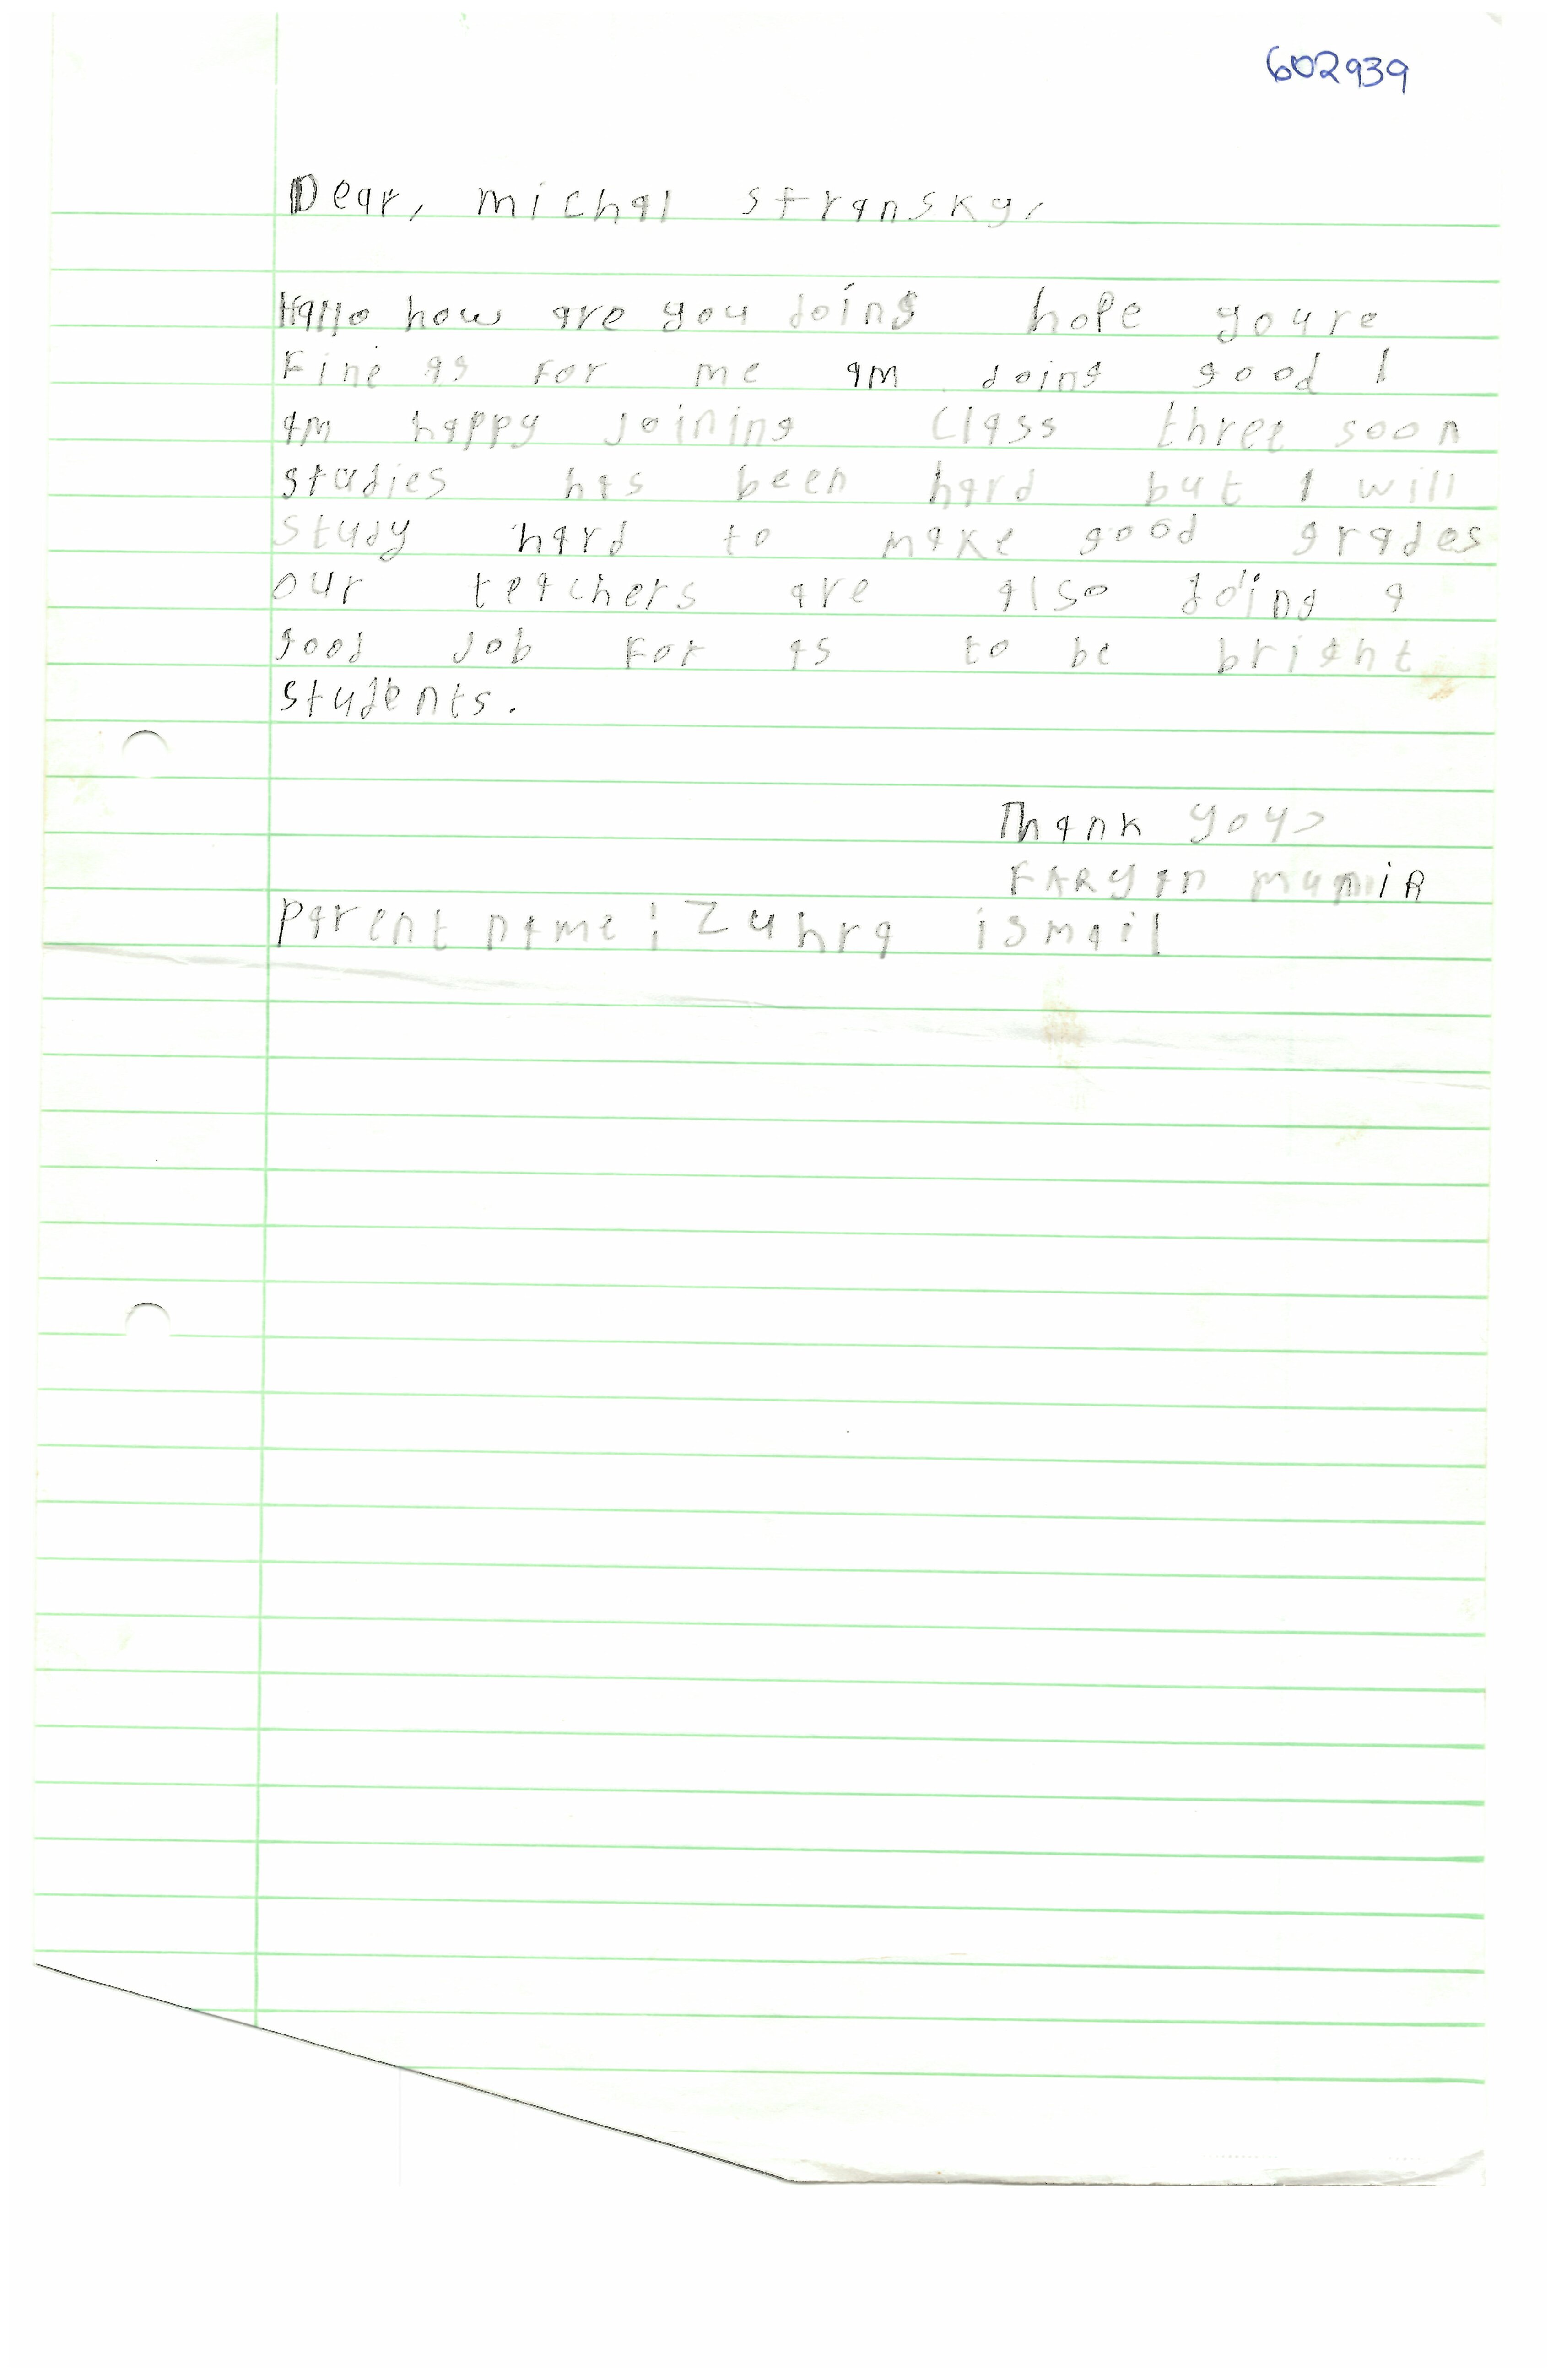 602939
Dear, michal stransky,
Hallo how are you doing hope youre
Fine as For me am doing good I
am happy joining class three soon
studies has been hard but I will
study hard to make good grades
our teachers are also doing a
good job For as to be bright
students.
Thank you>
FARYAN muniR
parent name: Zuhra ismail